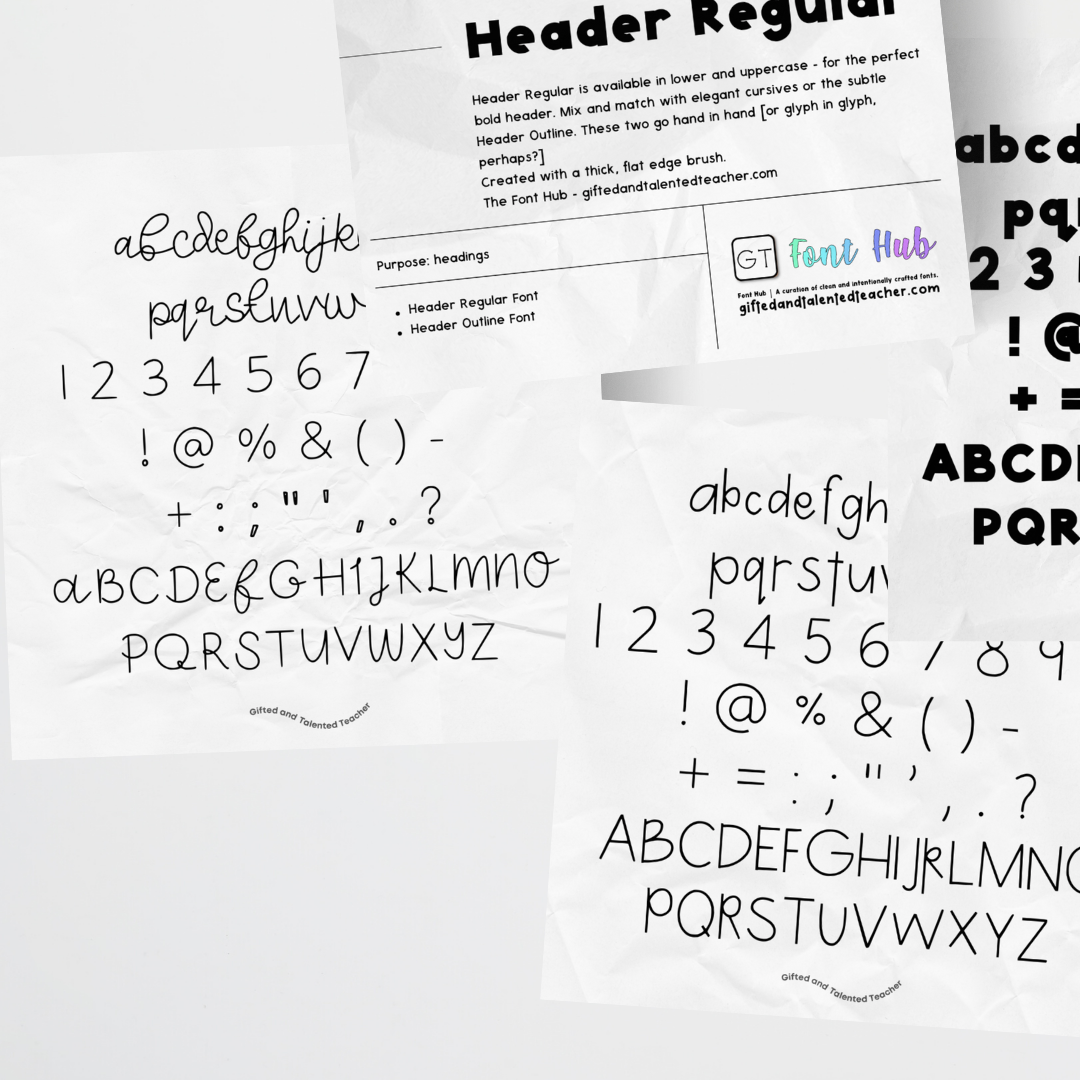 Header Regular
Header Regular is available in lower and uppercase - for the perfect
bold header. Mix and match with elegant cursives or the subtle
Header Outline. These two go hand in hand [or glyph in glyph,
perhaps?]
Created with a thick, flat edge brush.
The Font Hub - giftedandtalentedteacher.com
Purpose: headings
• Header Regular Font
• Header Outline Font
GT Font Hub
Font Hub | A curation of clean and intentionally crafted fonts.
giftedandtalentedteacher.com
abcdefghijk
pqrstuvw
1 2 3 4 5 6 7
! @ % & ( ) -
+ : ; " ' , . ?
aBCDEFGHIJKLMNO
PQRSTUVWXYZ
Gifted and Talented Teacher
abcd
pq
2 3
! @
+ =
ABCD
PQR
abcdefgh
pqrstuv
1 2 3 4 5 6 7 8 9
! @ % & ( ) -
+ = : ; " ' , . ?
ABCDEFGHIJKLMNO
PQRSTUVWXYZ
Gifted and Talented Teacher